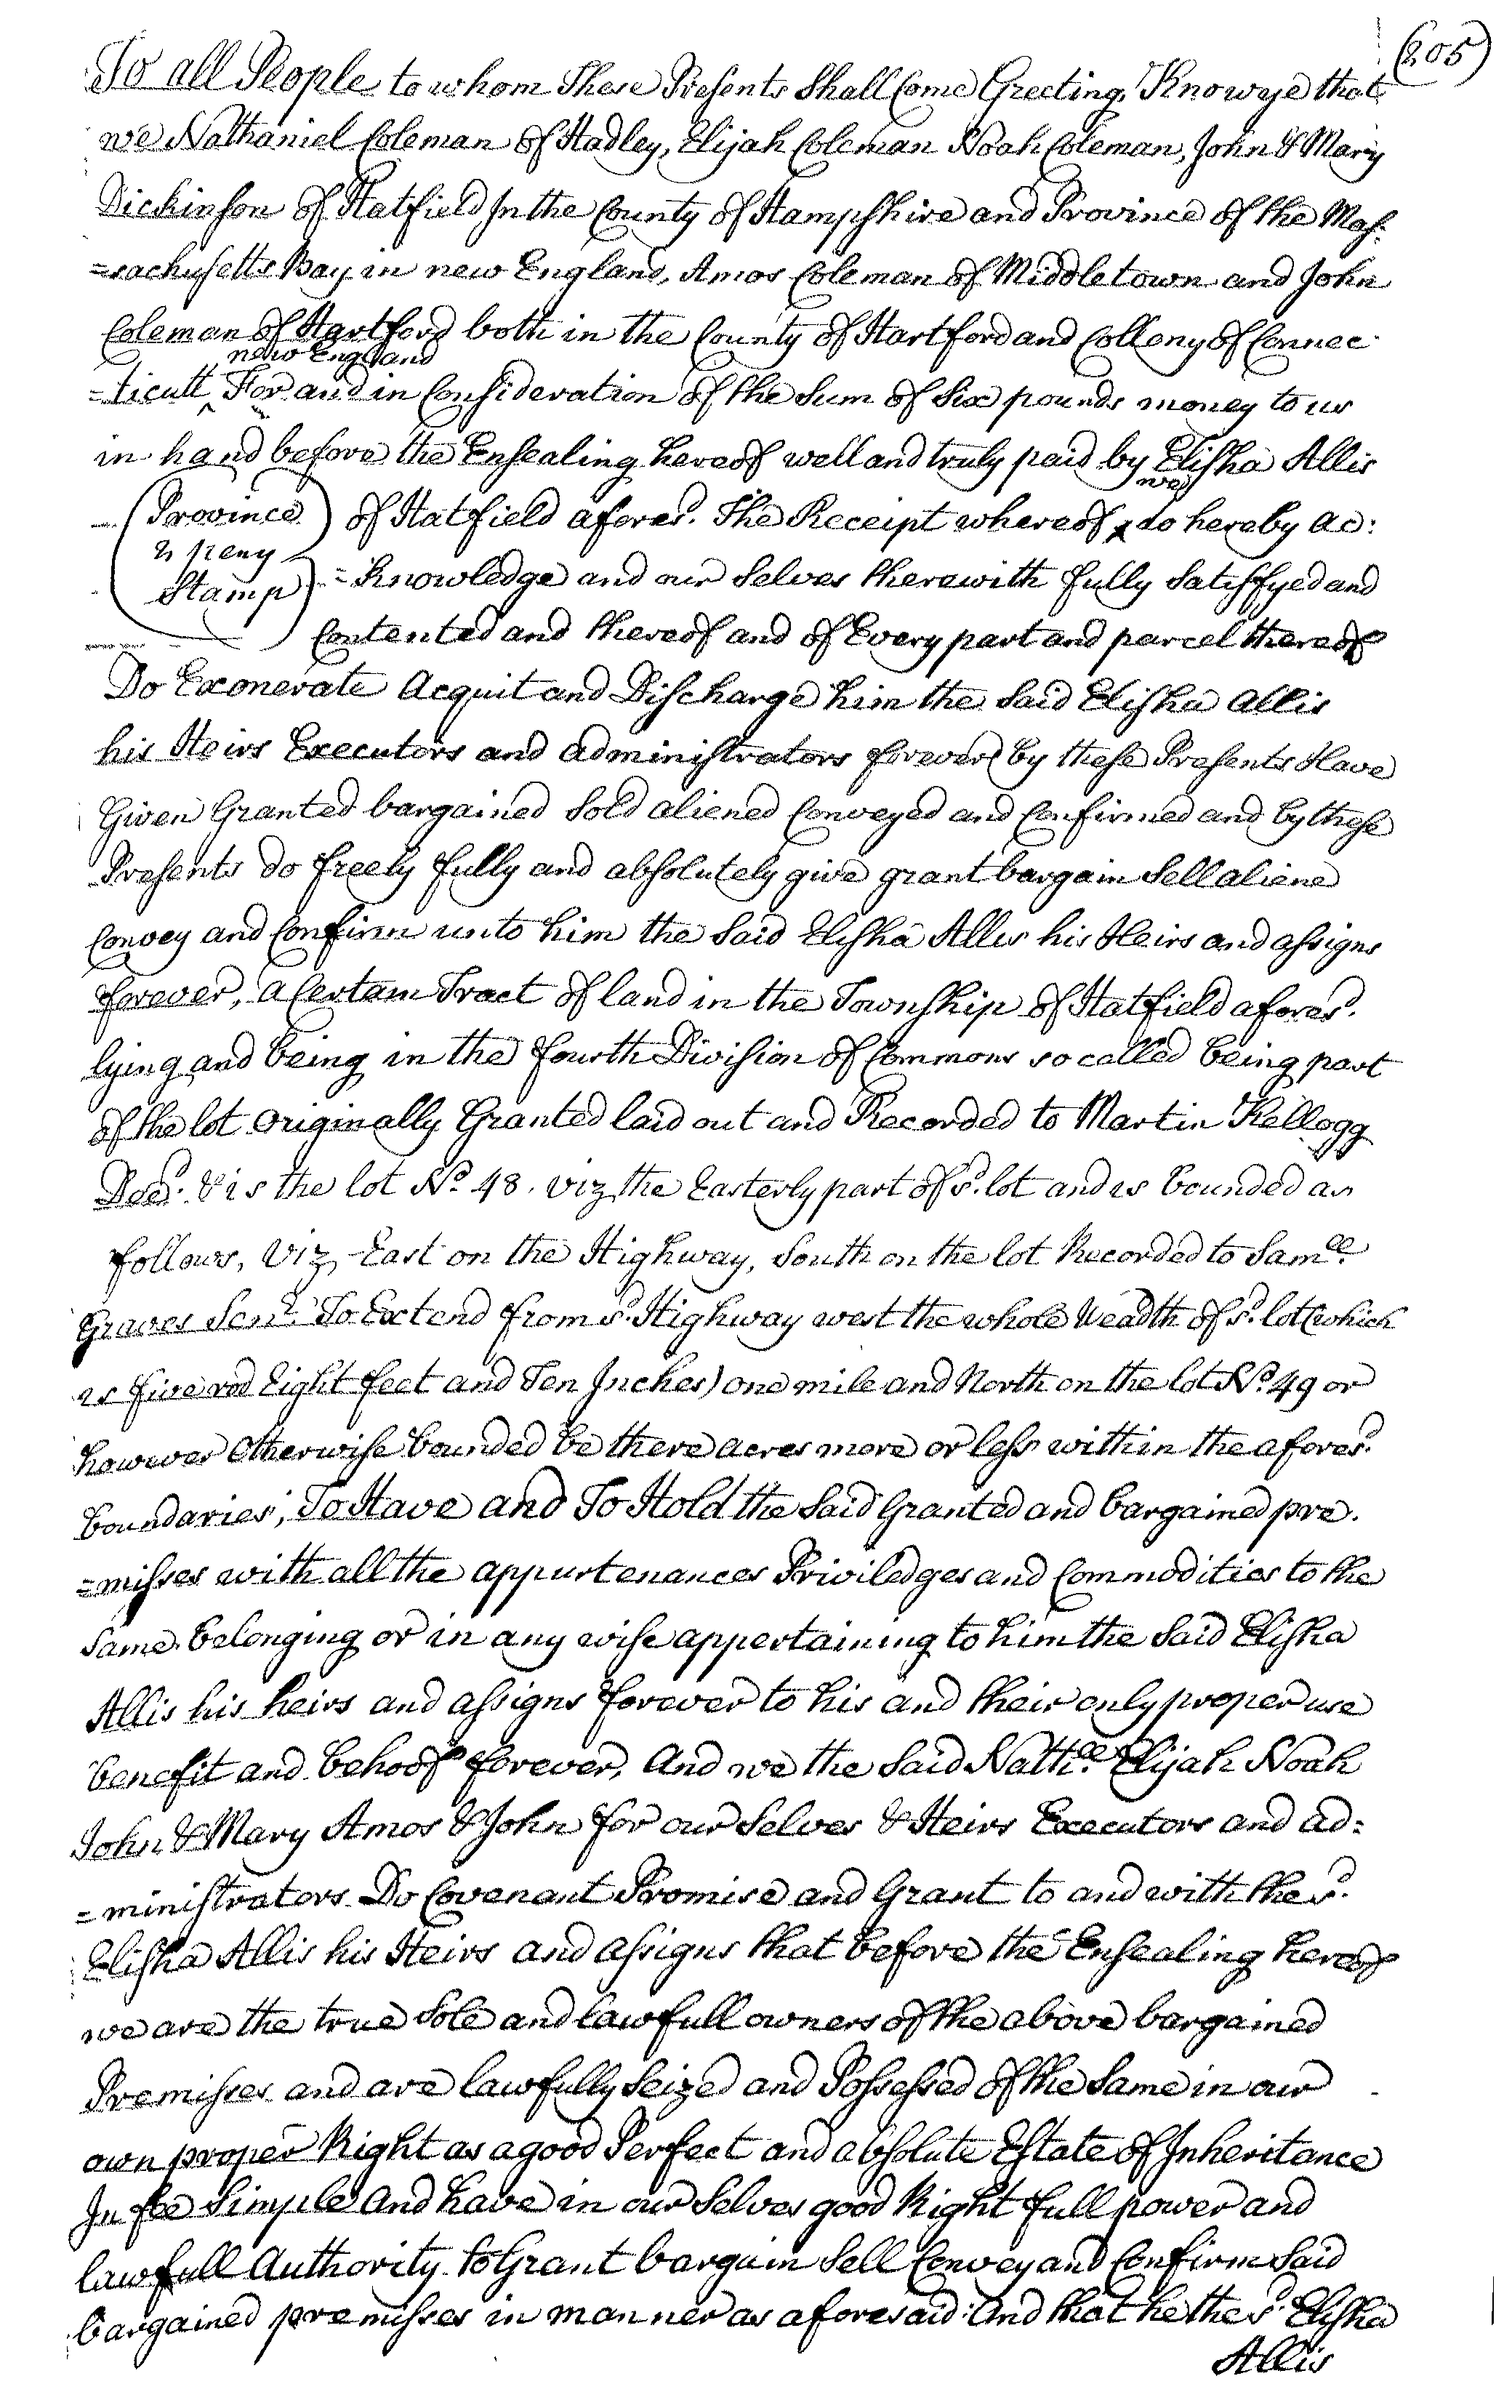 (205)
To all People to whom These Presents Shall Come Greeting, Know ye that
we Nathaniel Coleman of Hadley, Elijah Coleman Noah Coleman, John & Mary
Dickinson of Hatfield In the County of Hampshire and Province of the Mas:
=sachusetts Bay in new England, Amos Coleman of Middletown and John
Coleman of Hartford both in the County of Hartford and Collony of Connec
new England
=ticutt ^ For and in Consideration of the Sum of Six pounds money to us
in hand before the Ensealing hereof well and truly paid by Elisha Allis
we
Province of Hatfield afores.d The Receipt whereof ^ do hereby ac:
2 peny
Stamp =knowledge and our Selves therewith fully Satisfyed and
Contented and thereof and of Every part and parcel thereof
Do Exonerate Acquit and Discharge him the Said Elisha Allis
his Heirs Executors and administrators forever by these Presents Have
Given Granted bargained Sold aliened Conveyed and Confirmed and by these
Presents do freely fully and absolutely give grant bargain Sell aliene
Convey and Confirm unto him the Said Elisha Allis his Heirs and assigns
forever, a Certain Tract of land in the Township of Hatfield afores.d
lying and being in the fourth Division of Commons so called being part
of the lot originally Granted laid out and Recorded to Martin Kellogg
Dec.d & is the lot No. 48. viz, the Easterly part of s.d lot and is bounded as
follows, viz, East on the Highway, South on the lot Recorded to Sam.ll
Graves Sen.r To Extend from s.d Highway west the whole weadth of s.d lot (which
is five rod Eight feet and Ten Inches) one mile and North on the lot No. 49 or
however Otherwise bounded be there acres more or less within the afores.d
boundaries, To Have and To Hold the Said Granted and bargained pre.
=misses with all the appurtenances Priviledges and Commodities to the
Same belonging or in any wise appertaining to him the Said Elisha
Allis his heirs and assigns forever to his and their only proper use
benefit and behoof forever, And we the Said Nath.ll Elijah Noah
John & Mary Amos & John for our Selves & Heirs Executors and ad:
=ministrators Do Covenant Promise and Grant to and with the s.d
Elisha Allis his Heirs and assigns that before the Ensealing hereof
we are the true Sole and lawfull owners of the above bargained
Premisses and are lawfully Seized and Possessed of the Same in our
own proper Right as a good Perfect and absolute Estate of Inheritance
In fee Simple And have in our Selves good Right full power and
lawfull Authority to Grant bargain Sell Convey and Confirm Said
bargained premisses in manner as aforesaid: And that he the s.d Elisha
Allis